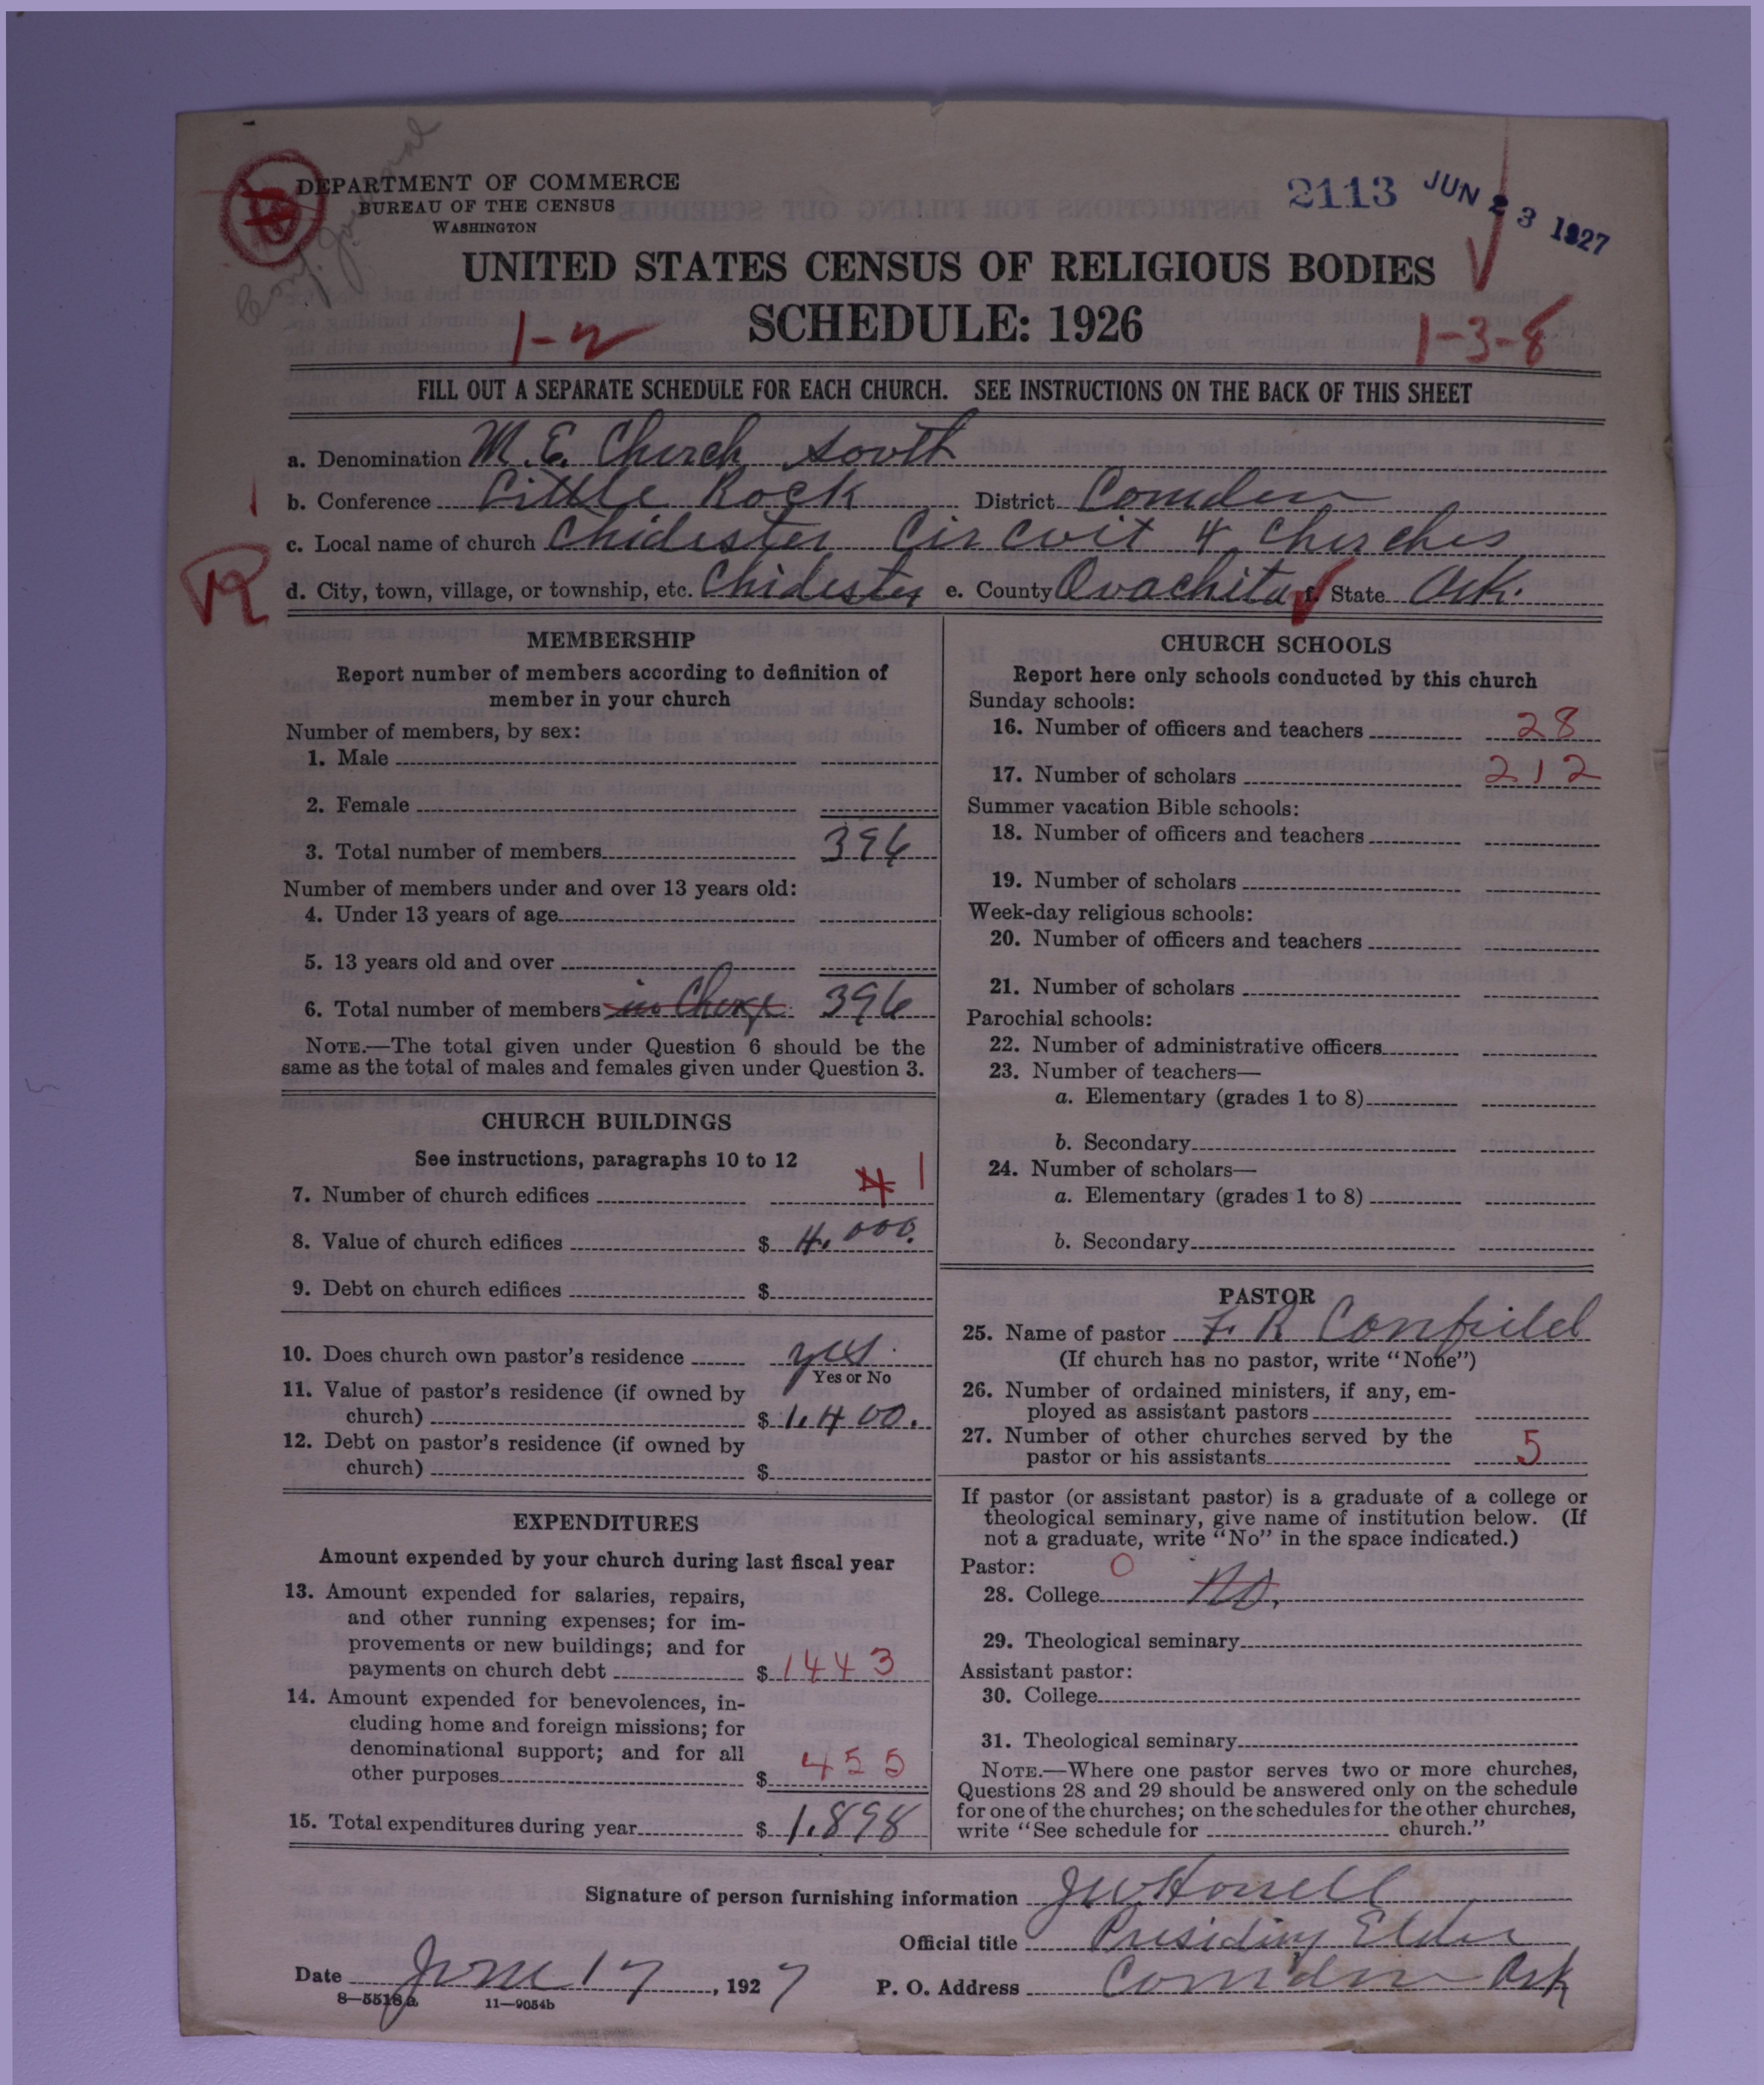 DEPARTMENT OF COMMERCE
BUREAU OF THE CENSUS
WASHINGTON
2113 JUN 23 1927
UNITED STATES CENSUS OF RELIGIOUS BODIES
SCHEDULE: 1926
1-2
1-3-8
FILL OUT A SEPARATE SCHEDULE FOR EACH CHURCH. SEE INSTRUCTIONS ON THE BACK OF THIS SHEET
a. Denomination M.E. Church South
b. Conference Little Rock District Camden
c. Local name of church Chidester Circuit 4 Churches
R
d. City, town, village, or township, etc. Chidester e. County Ouachita f. State Ark.
MEMBERSHIP
Report number of members according to definition of
member in your church
Number of members, by sex:
1. Male
2. Female
3. Total number of members 396
Number of members under and over 13 years old:
4. Under 13 years of age
5. 13 years old and over
6. Total number of members in Charge 396
NOTE.—The total given under Question 6 should be the
same as the total of males and females given under Question 3.
CHURCH BUILDINGS
See instructions, paragraphs 10 to 12
7. Number of church edifices 4 1
8. Value of church edifices $ 4,000.
9. Debt on church edifices $
10. Does church own pastor's residence yes.
Yes or No
11. Value of pastor's residence (if owned by
church) $ 1,400.
12. Debt on pastor's residence (if owned by
church) $
EXPENDITURES
Amount expended by your church during last fiscal year
13. Amount expended for salaries, repairs,
and other running expenses; for im-
provements or new buildings; and for
payments on church debt $ 1443
14. Amount expended for benevolences, in-
cluding home and foreign missions; for
denominational support; and for all
other purposes $ 455
15. Total expenditures during year $ 1,898
CHURCH SCHOOLS
Report here only schools conducted by this church
Sunday schools:
16. Number of officers and teachers 28
17. Number of scholars 212
Summer vacation Bible schools:
18. Number of officers and teachers
19. Number of scholars
Week-day religious schools:
20. Number of officers and teachers
21. Number of scholars
Parochial schools:
22. Number of administrative officers
23. Number of teachers—
a. Elementary (grades 1 to 8)
b. Secondary
24. Number of scholars—
a. Elementary (grades 1 to 8)
b. Secondary
PASTOR
25. Name of pastor F. R. Confield
(If church has no pastor, write "None")
26. Number of ordained ministers, if any, em-
ployed as assistant pastors
27. Number of other churches served by the
pastor or his assistants 5
If pastor (or assistant pastor) is a graduate of a college or
theological seminary, give name of institution below. (If
not a graduate, write "No" in the space indicated.)
Pastor: 0
28. College No.
29. Theological seminary
Assistant pastor:
30. College
31. Theological seminary
NOTE.—Where one pastor serves two or more churches,
Questions 28 and 29 should be answered only on the schedule
for one of the churches; on the schedules for the other churches,
write "See schedule for church."
Signature of person furnishing information JW Harrell
Official title Presiding Elder
Date June 17, 1927 P. O. Address Camden Ark
8—5518a 11—9054b